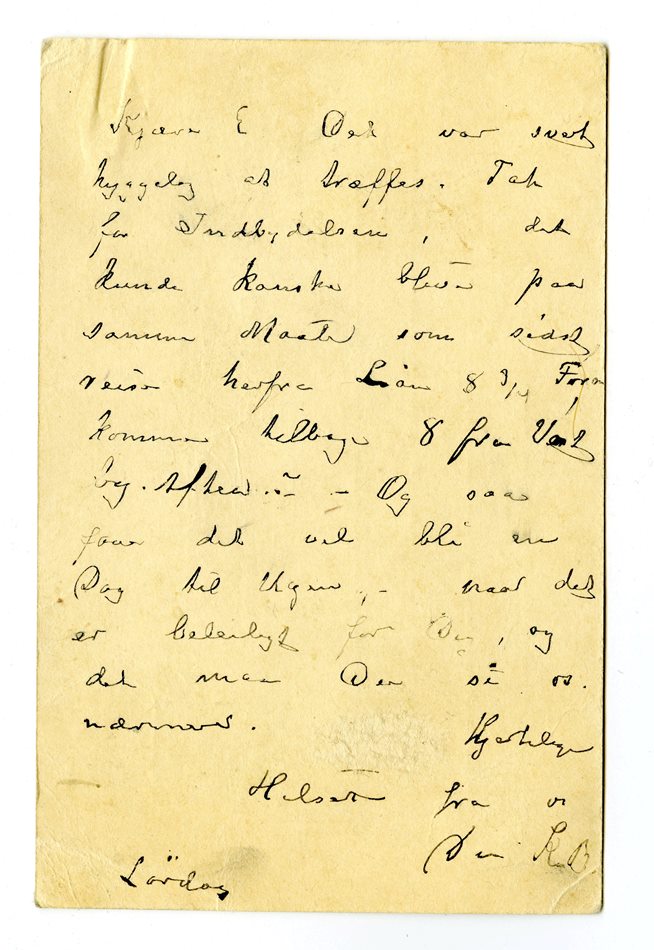 Kjære E Det var svært
hyggelig at træffes. Tak
for Indbydelsen, det
kunde kanske bleve paa
samme Maate som sidst
reise herfra Lian 8 3/4 Form
komme tilbage 8 fra Vest
by. Aften. - Og saa
faar det vel bli en
Dag til Ugen, - naar det
er beleiligt for Dig, og
det maa Du si os
nærmere. Hjertelige
Hilsen fra os
Din K.B.
Lørdag